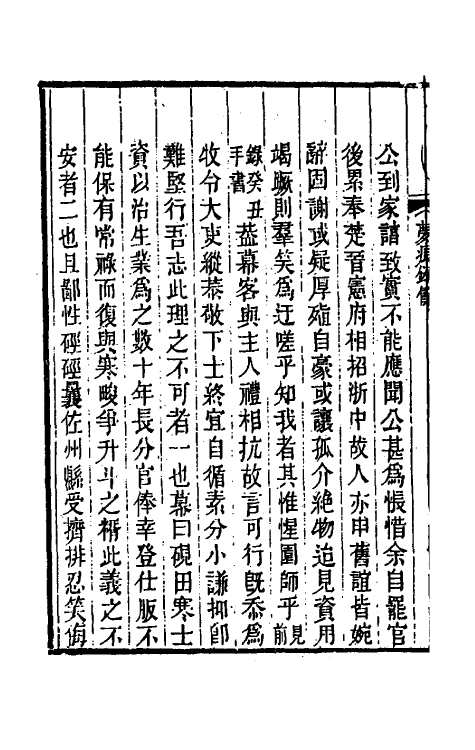 公到家諠致實不能應聞公甚爲悵惜余自罷官
後累奉楚晉憲府相招浙中故人亦申舊誼皆婉
辭固謝或疑厚殖自豪或讓孤介絶物迨見資用
竭蹶則羣笑爲迂嗟乎知我者其惟惺園師乎見前
錄癸丑手書葢幕客與主人禮相抗故言可行旣忝爲
牧令大吏縱恭敬下士終宜自循素分小謙抑卽
難堅行吾志此理之不可者一也幕曰硯田寒士
資以治生業爲之數十年長分官俸幸登仕版不
能保有常祿而復與寒畯爭升斗之糈此義之不
安者二也且鄙性硜硜曩佐州縣受擠排忍笑侮